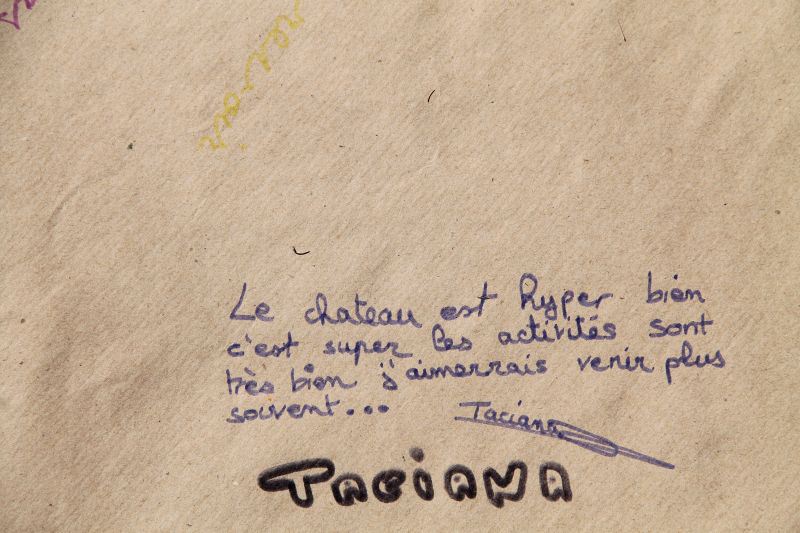 Le chateau est hyper bien
c'est super les activités sont
très bien j'aimerrais venir plus
souvent...
Taciana
TACiANA